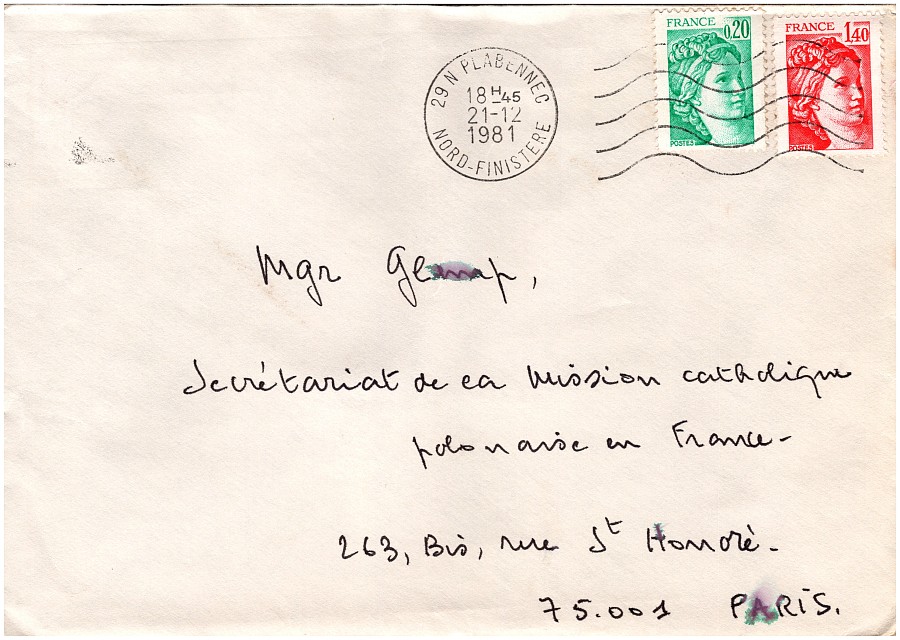 FRANCE 0,20
POSTES
FRANCE 1,40
POSTES
29 N PLABENNEC
18H45
21-12
1981
NORD-FINISTERE
Mgr
Secrétariat de la Mission catholique
polonaise en France-
263, Bis, rue St Honoré-
75.001 PARIS.